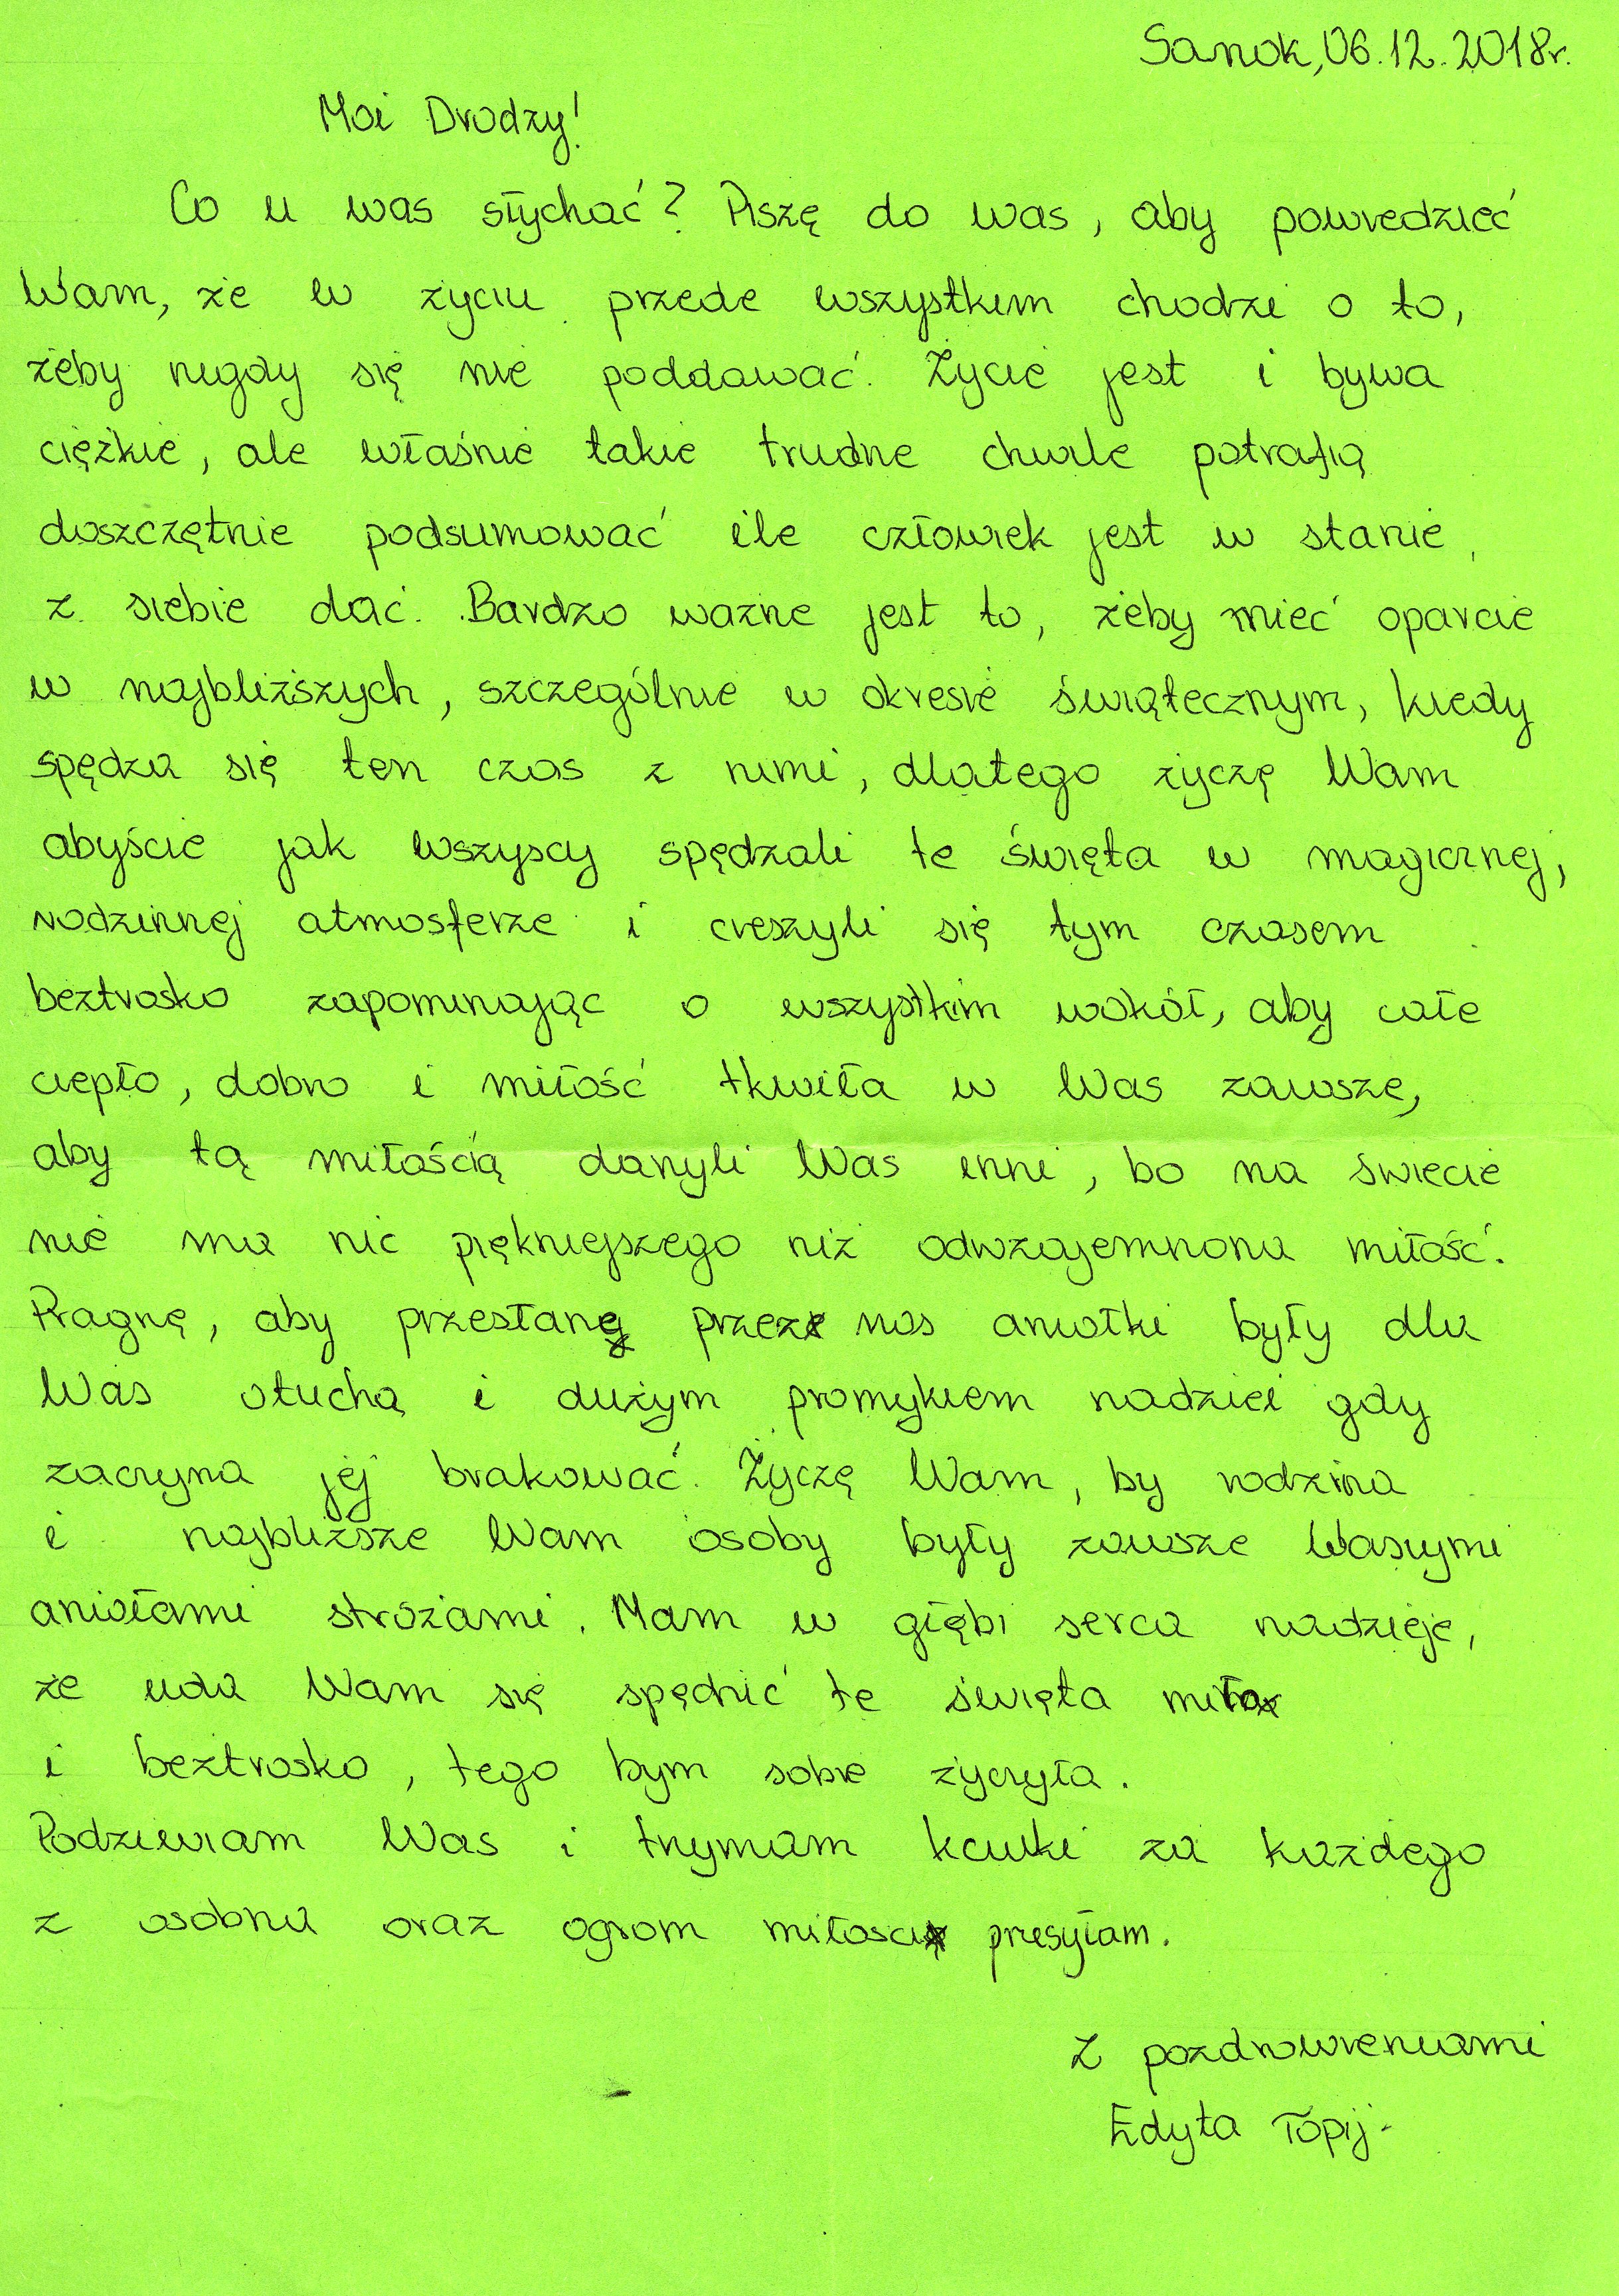 Sanok, 06.12.2018r.
Moi Drodzy!
Co u was słychać? Piszę do was, aby powiedzieć
Wam, że w życiu przede wszystkim chodzi o to,
żeby nigdy się nie poddawać. Życie jest i bywa
ciężkie, ale właśnie takie trudne chwile potrafią
doszczętnie podsumować ile człowiek jest w stanie
z siebie dać. Bardzo ważne jest to, żeby mieć oparcie
w najbliższych, szczególnie w okresie świątecznym, kiedy
spędza się ten czas z nimi, dlatego życzę Wam
abyście jak wszyscy spędzali te święta w magicznej,
rodzinnej atmosferze i cieszyli się tym czasem
beztrosko zapominając o wszystkim wokół, aby całe
ciepło, dobro i miłość tkwiła w Was zawsze,
aby tą miłością darzyli Was inni, bo na świecie
nie ma nic piękniejszego niż odwzajemniona miłość.
Pragnę, aby przesłane przez nas aniołki były dla
Was otuchą i dużym promykiem nadziei gdy
zaczyna jej brakować. Życzę Wam, by rodzina
i najbliższe Wam osoby były zawsze Waszymi
aniołami stróżami. Mam w głębi serca nadzieję,
że uda Wam się spędzić te święta miło
i beztrosko, tego bym sobie życzyła.
Podziwiam Was i trzymam kciuki za każdego
z osobna oraz ogrom miłości przesyłam.
Z pozdrowieniami
Edyta